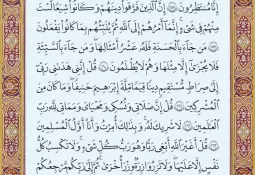 إِنَّا مُنتَظِرُونَ ۝ إِنَّ الَّذِينَ فَرَّقُوا دِينَهُمْ وَكَانُوا شِيَعًا لَّسْتَ
مِنْهُمْ فِي شَيْءٍ إِنَّمَا أَمْرُهُمْ إِلَى اللَّهِ ثُمَّ يُنَبِّئُهُم بِمَا كَانُوا يَفْعَلُونَ
۝ مَن جَاءَ بِالْحَسَنَةِ فَلَهُ عَشْرُ أَمْثَالِهَا وَمَن جَاءَ بِالسَّيِّئَةِ
فَلَا يُجْزَىٰ إِلَّا مِثْلَهَا وَهُمْ لَا يُظْلَمُونَ ۝ قُلْ إِنَّنِي هَدَانِي رَبِّي
إِلَىٰ صِرَاطٍ مُّسْتَقِيمٍ دِينًا قِيَمًا مِّلَّةَ إِبْرَاهِيمَ حَنِيفًا وَمَا كَانَ مِنَ
الْمُشْرِكِينَ ۝ قُلْ إِنَّ صَلَاتِي وَنُسُكِي وَمَحْيَايَ وَمَمَاتِي لِلَّهِ رَبِّ
الْعَالَمِينَ ۝ لَا شَرِيكَ لَهُ وَبِذَٰلِكَ أُمِرْتُ وَأَنَا أَوَّلُ الْمُسْلِمِينَ
۝ قُلْ أَغَيْرَ اللَّهِ أَبْغِي رَبًّا وَهُوَ رَبُّ كُلِّ شَيْءٍ وَلَا تَكْسِبُ كُلُّ
نَفْسٍ إِلَّا عَلَيْهَا وَلَا تَزِرُ وَازِرَةٌ وِزْرَ أُخْرَىٰ ثُمَّ إِلَىٰ رَبِّكُم مَّرْجِعُكُمْ